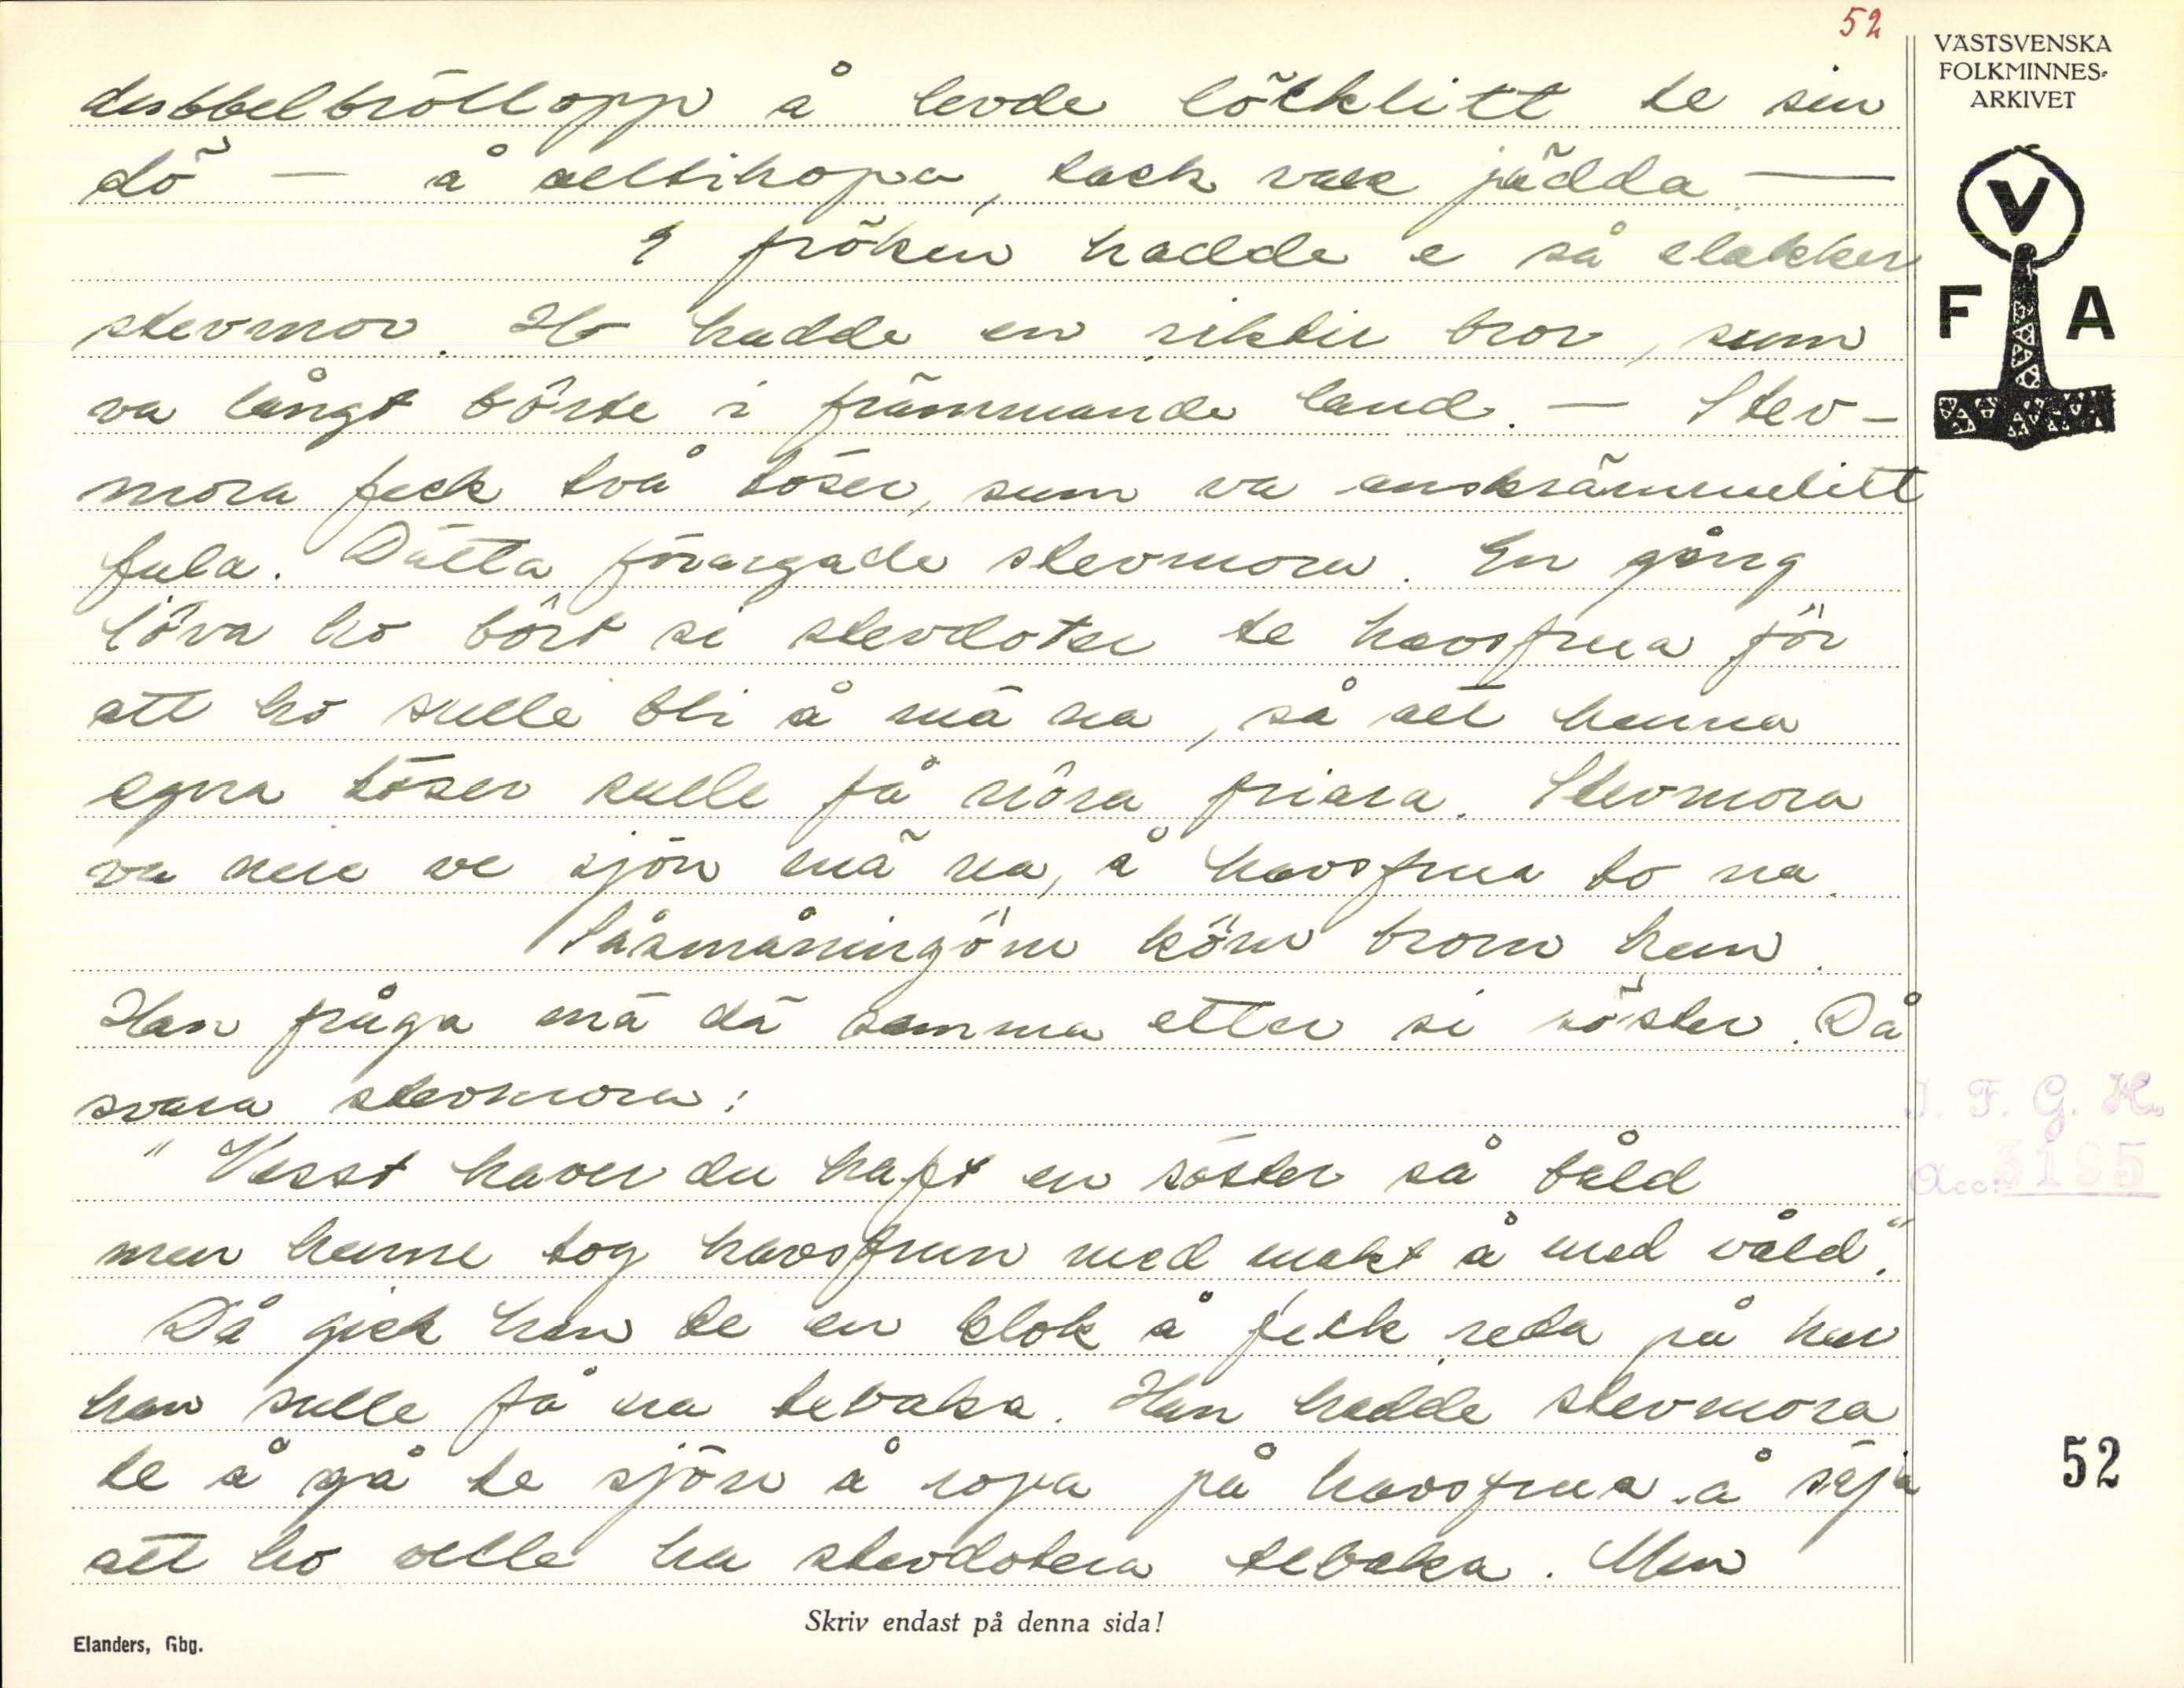 52
VÄSTSVENSKA
FOLKMINNES-
ARKIVET
V
F A
dubbelbröllopp å levde lökklitt te sin
dö – å alltihopa, tack vare jädda —
E fröken hadde e så elakker
stevmor. Ho hadde en riktier bror, sum
va långt börte i främmande land. – Stev-
mora feck två töser, sum va anskrämmelitt
fula. Dätta förargade stevmora. En gång
löva ho bôrt si stevdotter te havsfrua för
att ho sulle bli å mä na, så att henna
egna töser sulle få nôra friara. Stevmora
va nere ve sjön mä na, å havsfrua to na.
Såsmåningöm köm brorn hem.
Han fråga mä dä samma etter si söster. Då
svara stevmora:
"Vesst haver du haft en söster så båld
men henne tog havsfrun med makt å med våld".
Då gick han te en klok å feck reda på hur
han sulle få na tebaka. Han hadde stevmora
te å gå te sjön å ropa på havsfrua å säja
att ho velle ha stevdotera tebaka. Men
I. F. G. H.
Acc. 3195
52
Skriv endast på denna sida!
Elanders, Gbg.